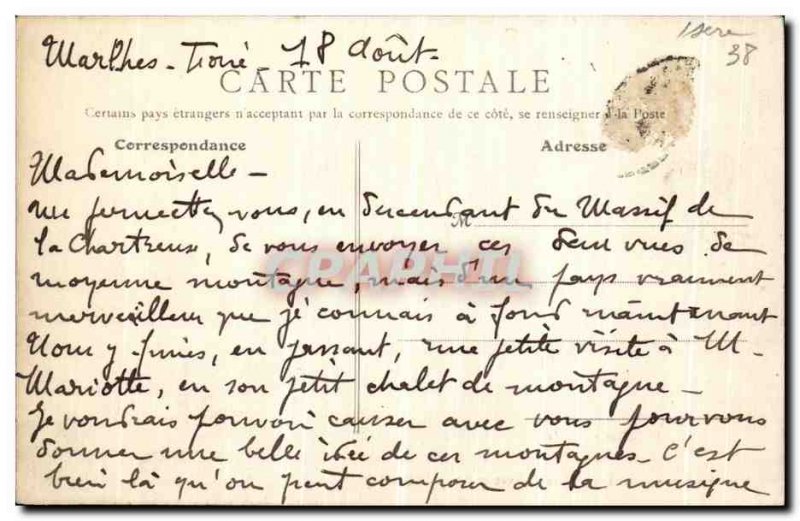 Isère
38
Marlhes - 18 Août -
CARTE POSTALE
Certains pays étrangers n'acceptant par la correspondance de ce côté, se renseigner à la Poste
Correspondance Adresse
Mademoiselle -
me permettez vous, en descendant du Massif de
M
la Chartreuse, de vous envoyer ces deux vues de
CRAPHIL
moyenne montagne, mais d'un pays vraiment
merveilleux que je connais à fond maintenant
Nous y fimes, en passant, une petite visite à M.
Mariotte, en son petit chalet de montagne -
Je voudrais pouvoir causer avec vous pour vous
donner une belle idée de ces montagnes - C'est
bien là qu'on peut composer de la musique